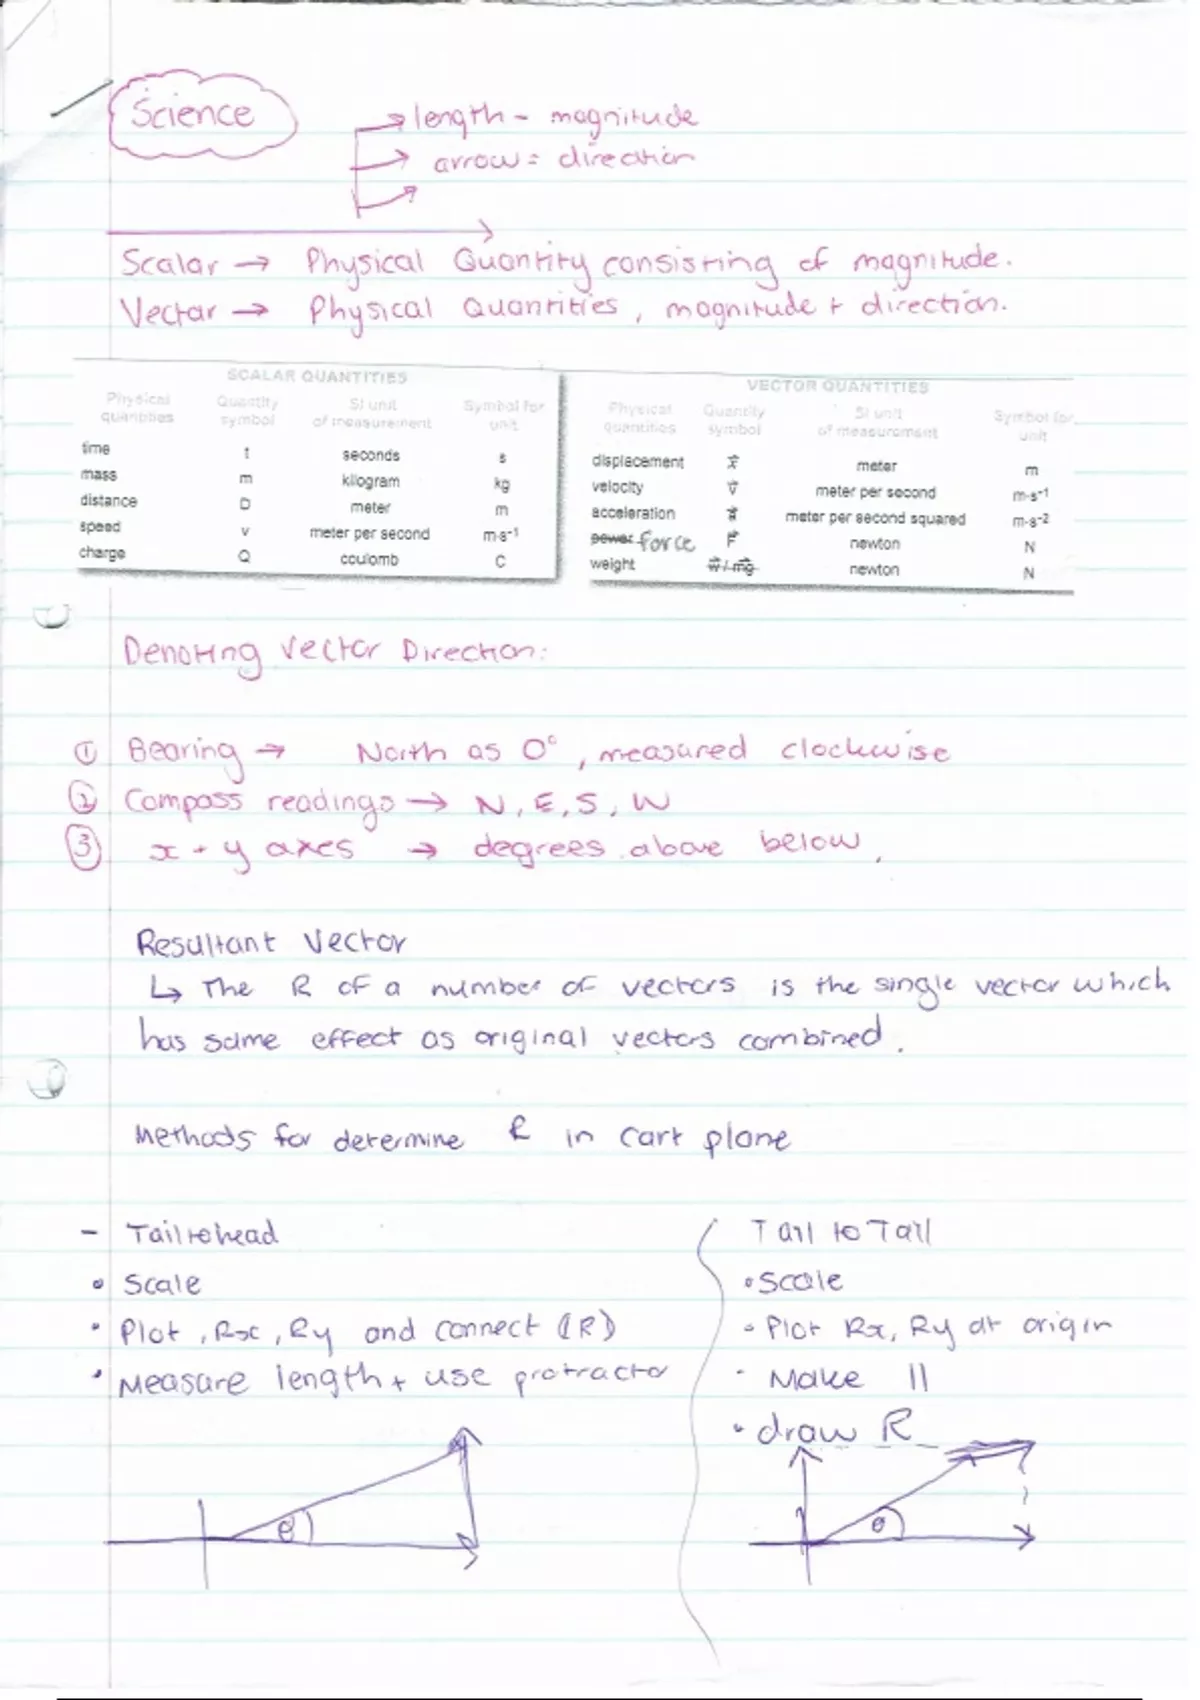 Science
length - magnitude
arrow = direction
Scalar → Physical Quantity consisting of magnitude.
Vector → Physical Quantities, magnitude + direction.
SCALAR QUANTITIES
Physical quantities Quantity symbol SI unit of measurement Symbol for unit
time t seconds s
mass m kilogram kg
distance D meter m
speed v meter per second m·s⁻¹
charge Q coulomb C
VECTOR QUANTITIES
Physical quantities Quantity symbol SI unit of measurement Symbol for unit
displacement x⃗ meter m
velocity v⃗ meter per second m·s⁻¹
acceleration a⃗ meter per second squared m·s⁻²
power force F⃗ newton N
weight w⃗ / mg newton N
Denoting Vector Direction:
① Bearing → North as 0°, measured clockwise
② Compass readings → N, E, S, W
③ x + y axes → degrees above below,
Resultant Vector
↳ The R of a number of vectors is the single vector which
has same effect as original vectors combined.
Methods for determine R in Cart plane
- Tail to head
• Scale
• Plot, Rx, Ry and connect (R)
• Measure length + use protractor
θ
Tail to Tail
• Scale
• Plot Rx, Ry at origin
- Make ||
• draw R
θ